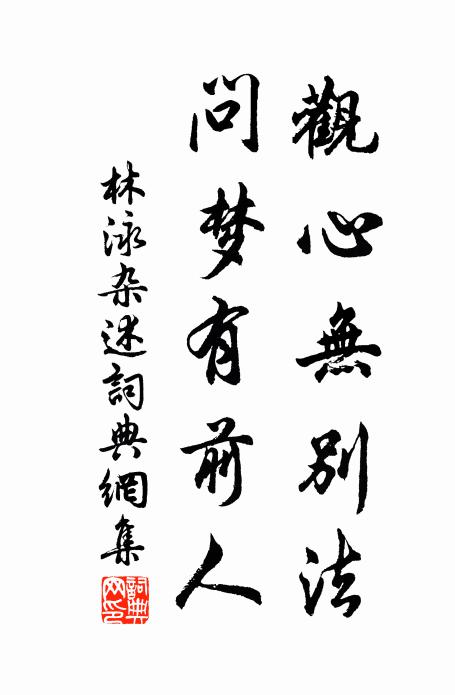 觀心無別法
问梦有前人
林泳杂述詞典網集
詞典网印